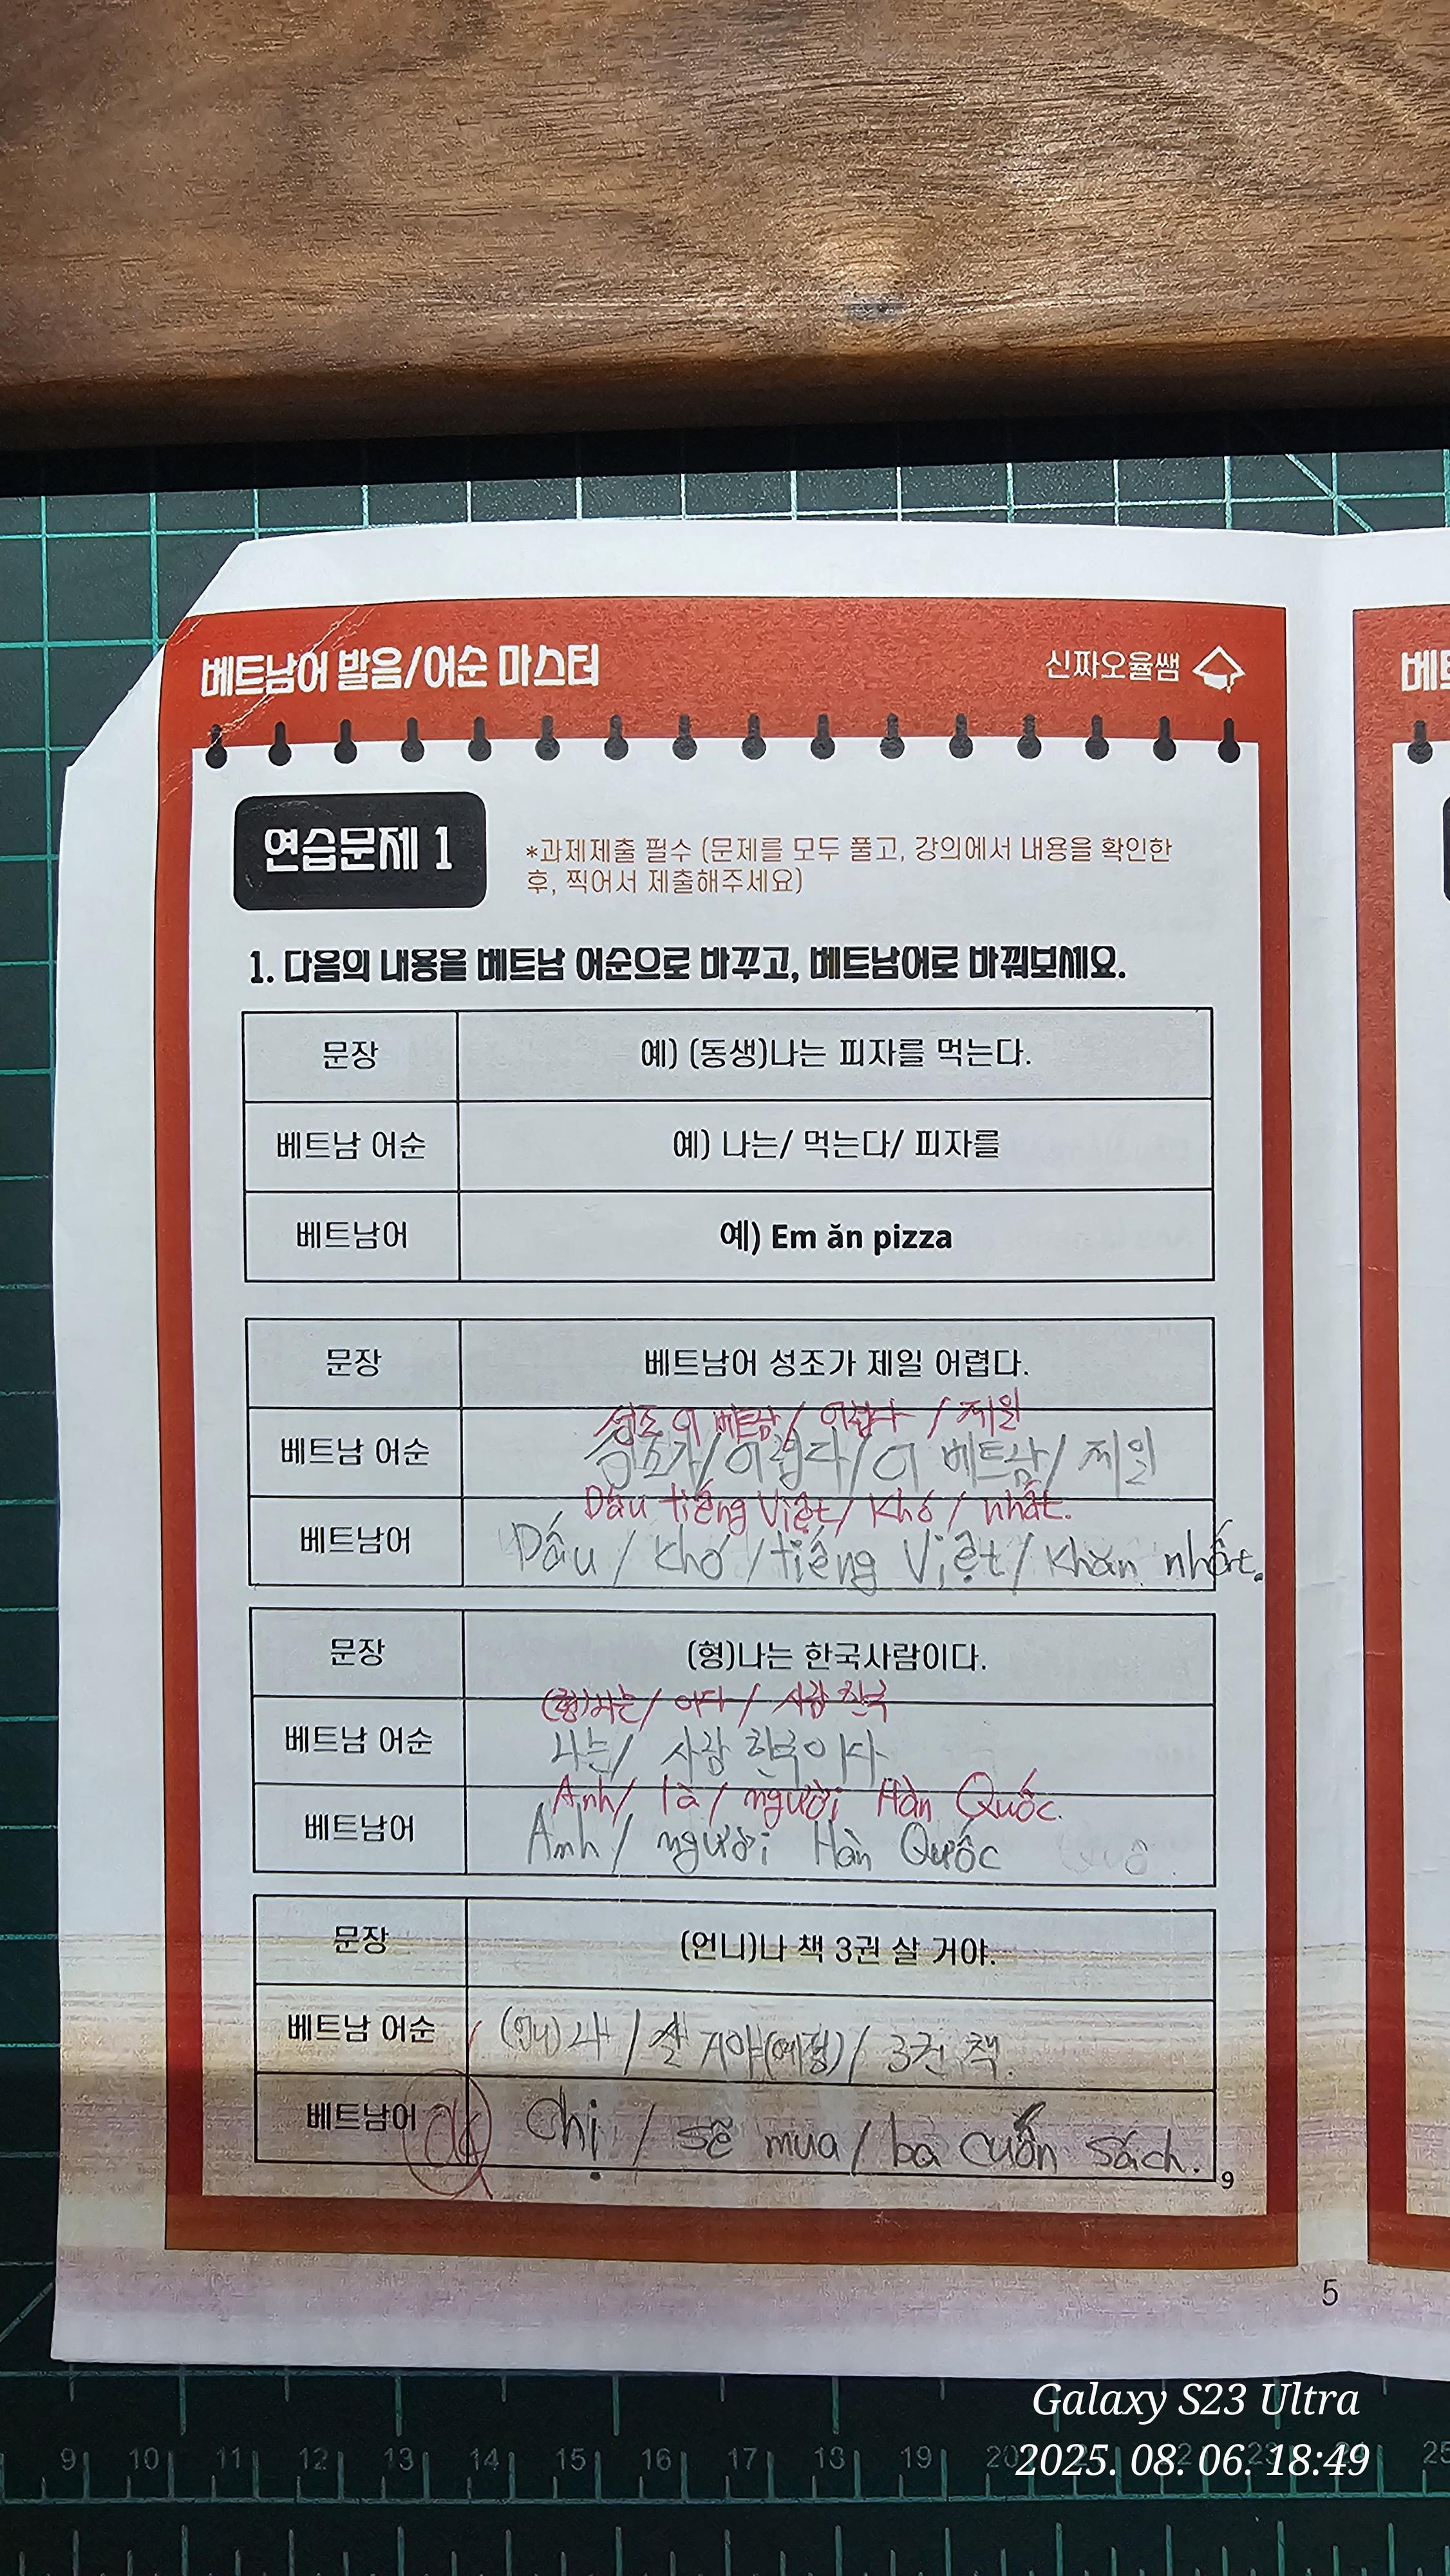 베트남어 발음/어순 마스터
신짜오율쌤
베트
연습문제 1
*과제제출 필수 (문제를 모두 풀고, 강의에서 내용을 확인한
후, 찍어서 제출해주세요)
1. 다음의 내용을 베트남 어순으로 바꾸고, 베트남어로 바꿔보세요.
문장 예) (동생)나는 피자를 먹는다.
베트남 어순 예) 나는/ 먹는다/ 피자를
베트남어 예) Em ăn pizza
문장 베트남어 성조가 제일 어렵다.
성조 어 베트남 / 어렵다 / 제일
베트남 어순 성조가/어렵다/어 베트남/ 제일
Dấu tiếng Việt/ khó / nhất.
베트남어 Dấu / khó / tiếng Việt / nhất.
문장 (형)나는 한국사람이다.
(형)나는/ 이다 / 사람 한국
베트남 어순 나는/ 사람 한국이다
Anh/ là / người Hàn Quốc.
베트남어 Anh / người Hàn Quốc
문장 (언니)나 책 3권 살 거야.
베트남 어순 (언니) 나 / 살 거야(예정) / 3권 책.
베트남어 Chị / sẽ mua / ba cuốn sách.
9
5
9 10 11 12 13 14 15 16 17 18 19 20 22 23 25
Galaxy S23 Ultra
2025. 08. 06. 18:49